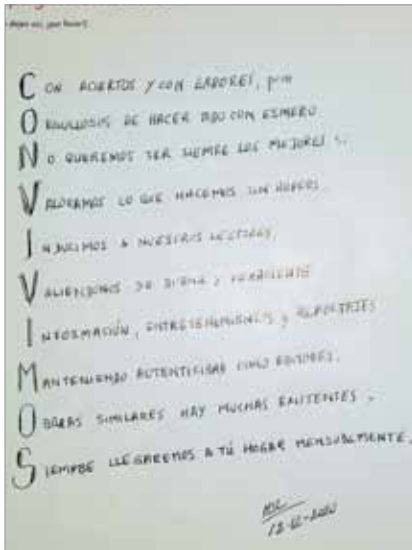 CON ACIERTOS Y CON ERRORES, pero
ORGULLOSOS DE HACER TODO CON ESMERO.
NO QUEREMOS SER SIEMPRE LOS MEJORES SI
VALORAMOS LO QUE HACEMOS CON
INDUCIMOS A NUESTROS LECTORES,
VALIENDONOS DE y
INFORMACIÓN, ENTRETENIMIENTOS y REPORTAJES
MANTENIENDO AUTENTICIDAD COMO EDITORES.
OBRAS SIMILARES HAY MUCHAS EXISTENTES,
SIEMPRE LLEGAREMOS A TÚ HOGAR MENSUALMENTE.